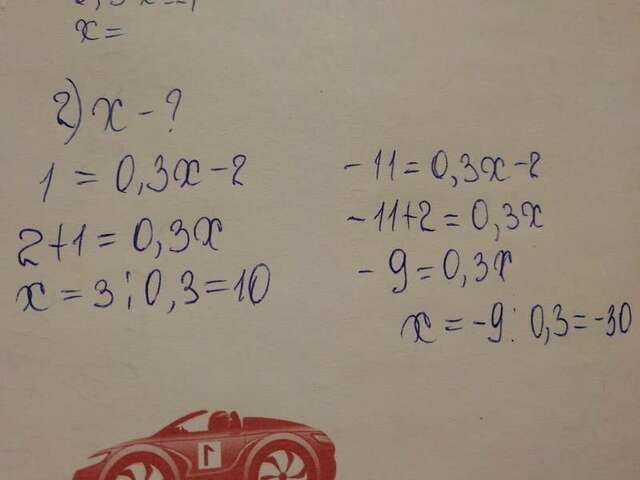 x =
2) x - ?
1 = 0,3x - 2
2 + 1 = 0,3x
x = 3 : 0,3 = 10
-11 = 0,3x - 2
-11 + 2 = 0,3x
-9 = 0,3x
x = -9 : 0,3 = -30
1